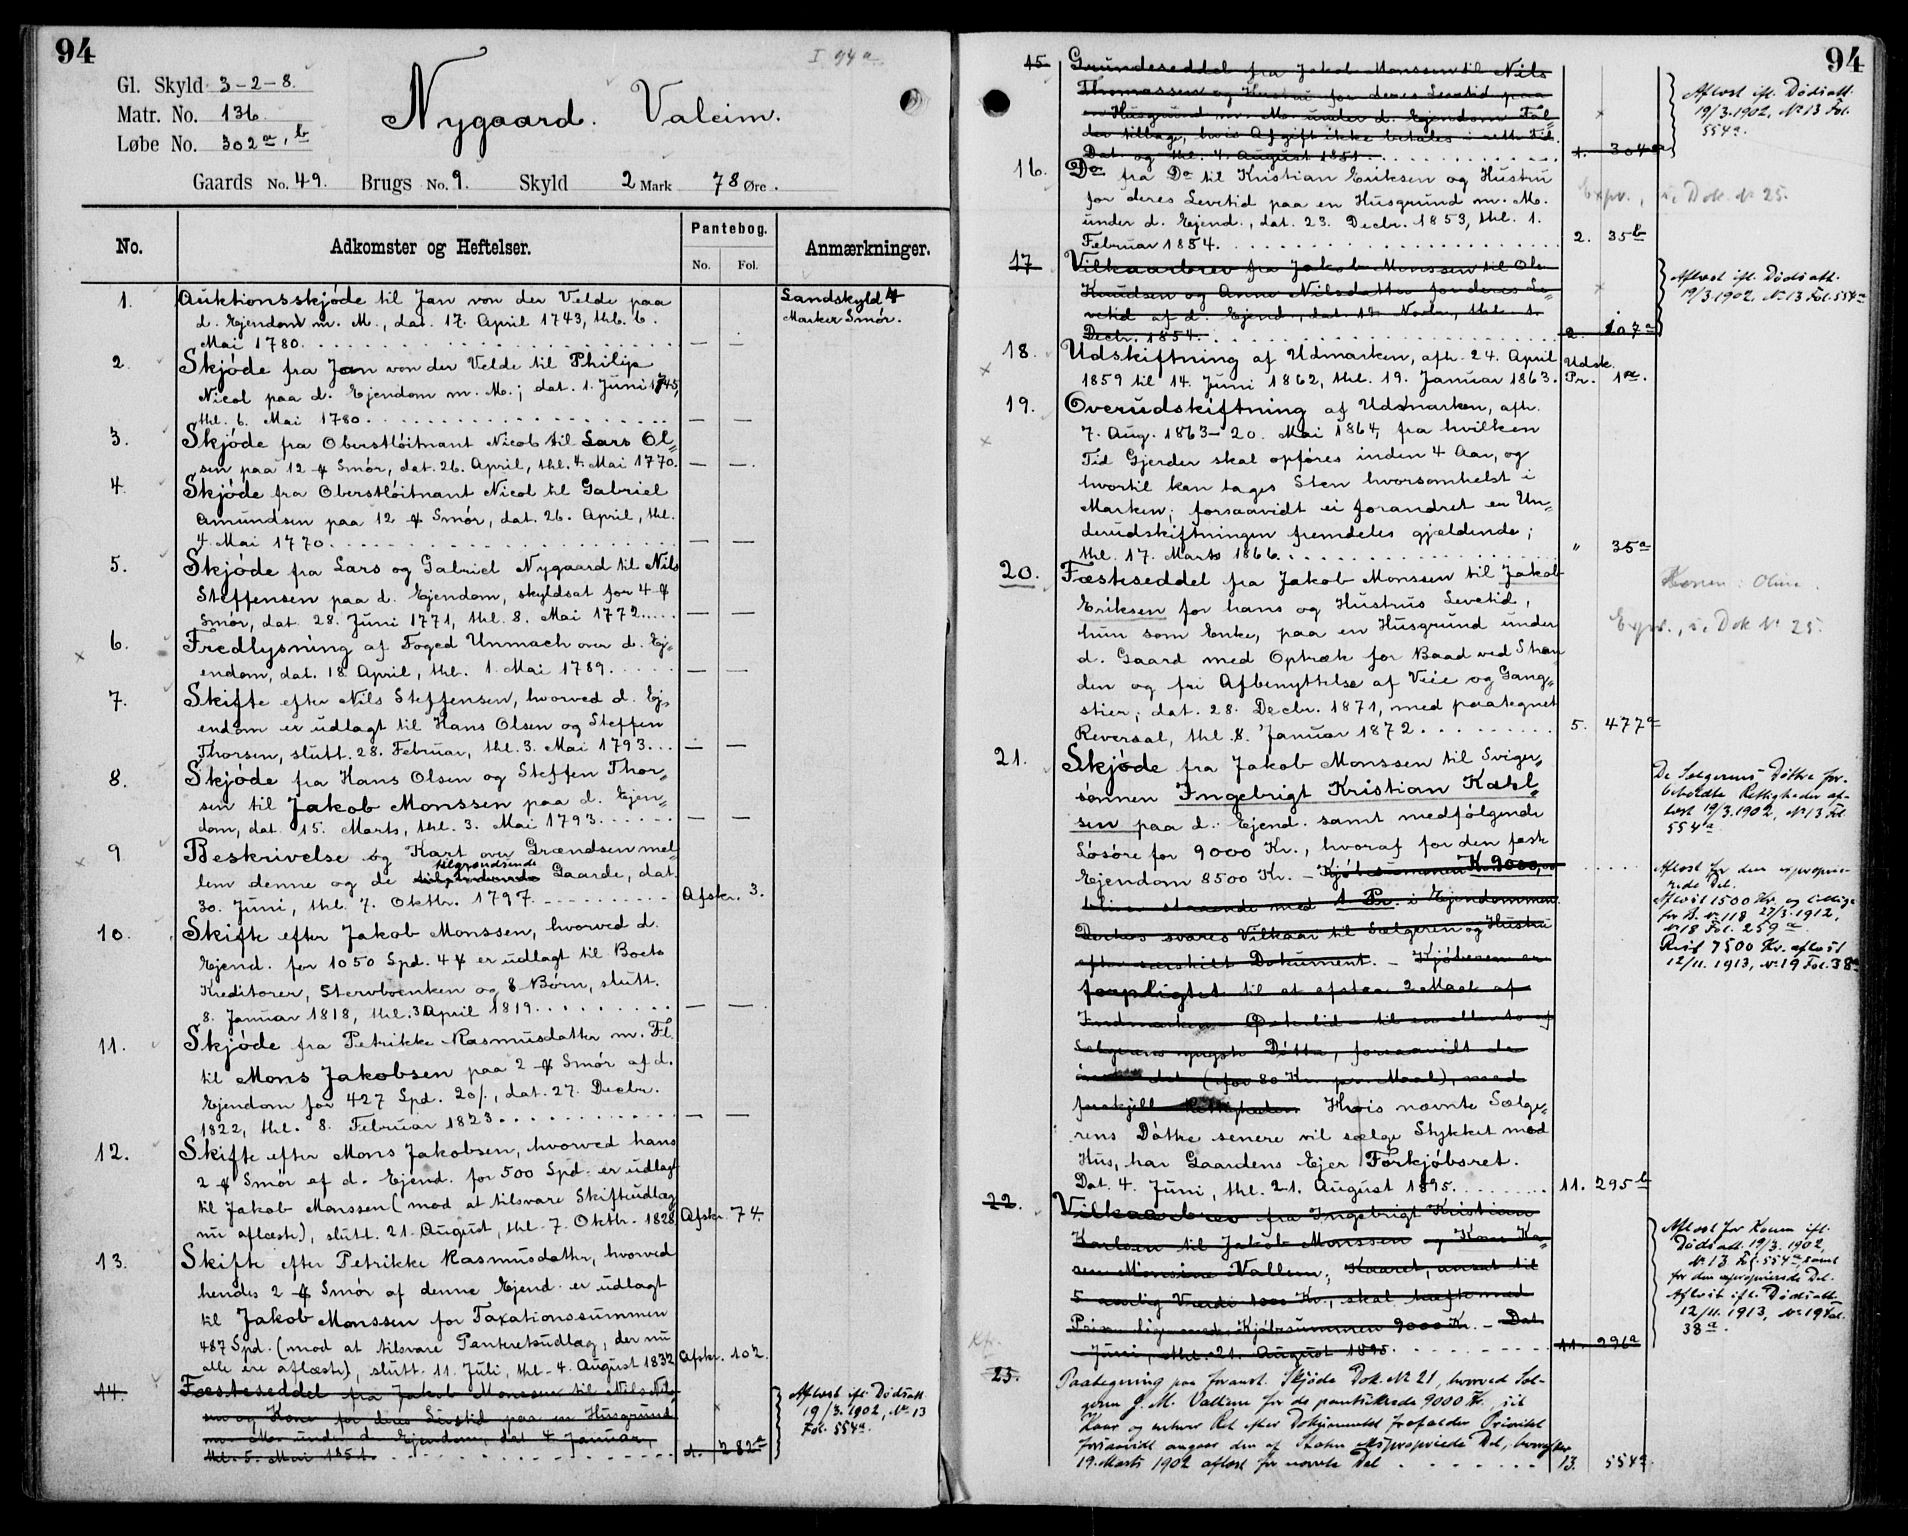 94
I 94 a.
Gl. Skyld 3-2-8.
Matr. No. 136.
Løbe No. 302 a, b
Nygaard. Valeim.
Gaards No. 49. Brugs No. 9. Skyld 2 Mark 78 Øre.
No. Adkomster og Heftelser. Pantebog. No. Fol. Anmærkninger.
1. Auktionsskjøde til Jan von der Velde paa
d. Ejendom m. M., dat. 17. April 1743, thl. 6.
Mai 1780. — —
Landskyld 4
Marker Smør.
2. Skjøde fra Jan von der Velde til Philip
Nicol paa d. Ejendom m. M.; dat. 1. Juni 1745,
thl. 6. Mai 1780. — —
3. Skjøde fra Oberstløitnant Nicol til Lars Ol=
sen paa 12 ℔ Smør, dat. 26. April, thl. 4. Mai 1770. — —
4. Skjøde fra Oberstløitnant Nicol til Gabriel
Amundsen paa 12 ℔ Smør, dat. 26. April, thl.
4. Mai 1770. — —
5. Skjøde fra Lars og Gabriel Nygaard til Nils
Steffensen paa d. Ejendom, skyldsat for 4 ℔
Smør, dat. 28. Juni 1771, thl. 8. Mai 1772. — —
6. Fredlysning af Foged Unmach over d. Ej=
endom, dat. 18 April, thl. 1. Mai 1789. — —
7. Skifte efter Nils Steffensen, hvorved d. Ej=
endom er udlagt til Hans Olsen og Steffen
Thorsen, slutt. 28. Februar, thl. 3. Mai 1793. — —
8. Skjøde fra Hans Olsen og Steffen Thor=
sen til Jakob Monssen paa d. Ejen=
dom, dat. 15. Marts, thl. 3. Mai 1793. — —
9 Beskrivelse og Kart over Grændsen mel=
tilgrændsende
lem denne og de Gaarde, dat.
30. Juni, thl. 7. Oktbr. 1797. Afskr. 3.
10. Skifte efter Jakob Monssen, hvorved d.
Ejend. for 1050 Spd. 4 ℔ er udlagt til Boets
Kreditorer, Stervboenken og 8 Børn, slutt.
8. Januar 1818, thl. 3 April 1819. — —
11. Skjøde fra Petrikke Rasmusdatter m. Fl.
til Mons Jakobsen paa 2 ℔ Smør af d.
Ejendom for 427 Spd. 20/, dat. 27. Decbr.
1822, thl. 8. Februar 1823. — —
12. Skifte efter Mons Jakobsen, hvorved hans
2 ℔ Smør af d. Ejend. for 500 Spd. er udlagt
til Jakob Monssen (mod at tilsvare Skifteudlæg
nu aflæste), slutt. 21. August, thl. 7. Oktbr. 1828 Afskr. 74.
13. Skifte efter Petrikke Rasmusdatter, hvorved
hendes 2 ℔ Smør af denne Ejend. er udlagt
til Jakob Monssen for Taxationssummen
487 Spd. (mod at tilsvare Panteretsudlæg, der nu
alle ere aflæste), slutt. 11. Juli, thl. 4. August 1832 Afskr. 102.
14. Fæsteseddel fra Jakob Monssen til Nils Nil=
sen og Kone for deres Livstid paa en Husgrund
m. M. under d. Ejendom, dat. 4. Januar,
thl. 5. Mai 1851. 1. 282a
Aflæst ifl. Dødsatt.
19/3.1902, No. 13
Fol. 554a.
94
15 Grundeseddel fra Jakob Monssen til Nils
Thomassen og Hustru for deres Levetid paa
en Husgrund m. M. under d. Ejendom Fal=
der tilbage, hvis Afgift ikke betales i rette Tid.
Dat. og thl. 4. August 1851. 1. 304a
Aflæst ifl. Dødsatt.
19/3.1902, No 13 Fol.
554a.
16. Do fra Do til Kristian Eriksen og Hustru
for deres Levetid paa en Husgrund m. M.
under d. Ejend., dat. 23. Decbr. 1853, thl. 1.
Februar 1854. 2. 35b
Expr., i. Dok. No 25.
17 Vilkaarbrev fra Jakob Monssen til Ole
Knudsen og Anne Nilsdatter for deres Le=
vetid af d. Ejend., dat. 17. Novbr., thl. 1.
Decbr. 1854. 2. 107a
Aflæst ifl. Dødsatt.
19/3.1902, No 13 Fol. 554a
18. Udskiftning af Udmarken, afh. 24. April
1859 til 14. Juni 1862, thl. 19. Januar 1863.
Udsk.
Pr. 1a.
19. Overudskiftning af Udmarken, afh.
7. Aug. 1863- 20. Mai 1864, fra hvilken
Tid Gjerder skal opføres inden 4 Aar, og
hvortil kan tages Sten hvorsomhelst i
Marken; forsaavidt ei forandret er Un=
derudskiftningen fremdeles gjældende;
thl. 17. Marts 1866. " 35a
20. Fæsteseddel fra Jakob Monssen til Jakob
Eriksen for hans og Hustrus Levetid,
hun som Enke, paa en Husgrund under
d. Gaard med Optræk for Baad ved Stran
den og fri Afbenyttelse af Veie og Gang=
stier; dat. 28. Decbr. 1871, med paategnet
Reversal, thl. 8. Januar 1872. 5. 477a
Konen: Oline.
Expr., i. Dok No 25.
21. Skjøde fra Jakob Monssen til Sviger=
sønnen Ingebrigt Kristian Karl=
sen paa d. Ejend. samt medfølgende
Løsøre for 9000 Kr., hvoraf for den faste
Ejendom 8500 Kr. - Kjøbesummen K. 9000, er
bliver staaende med 1 Pr. i Ejendommen.
Derhos svares Vilkaar til Sælgeren og Hustru
efter særskilt Dokument. - Kjøberen er
forpligtet til at afstaa 2 Maal af
Indmarken Østerlid til en eller to af
Sælgerens yngste Døtre, forsaavidt de
det (for 80 Kr. pr. Maal), med
forskjell. Rettigheder. Hvis nævnte Sælge=
rens Døttre senere vil sælge Stykket med
Hus, har Gaardens Ejer Forkjøbsret.
Dat. 4. Juni, thl. 21. August 1895. 11. 295b
De Sælgerens Døttre for-
beholdte Rettigheder af-
læst 19/3.1902, No 13 Fol
554a
Aflæst for den exproprie-
rede Del.
Afløst 1500 Kr. og
for B. No 118 27/3.1912,
No 18 Fol. 259a.
Rest 7500 Kr. aflæst
12/11. 1913, No 19 Fol. 38a
22. Vilkaarbrev fra Ingebrigt Kristian
Karlsen til Jakob Monssen og Kone Ka=
ren Monsine Vallem; Kaaret, ansat til
5 aarlig Værdi 1000 Kr., skal hæfte med
Prior. lig med Kjøbesummen 9000 Kr. - Dat.
Juni, thl. 21. August 1895. 11. 296a
Aflæst for Konen ifl.
Dødsatt. 19/3. 1902,
No. 13 Fol. 554a, samt
for den exproprierede Del.
Aflæst ifl. Dødsatt.
12/11. 1913, No. 19 Fol.
38a.
23. Paategning paa foranst. Skjøde Dok. No 21, hvorved Sel-
geren J. M. Vallem for de pantsikrede 9000 Kr., sit
Kaar og enhver Ret efter Dokumentet frafalder Prioritet
forsaavidt angaar den af Staten expropriede Del, hvorefter
19. Marts 1902 aflæst for nævnte Del 13. 554a.